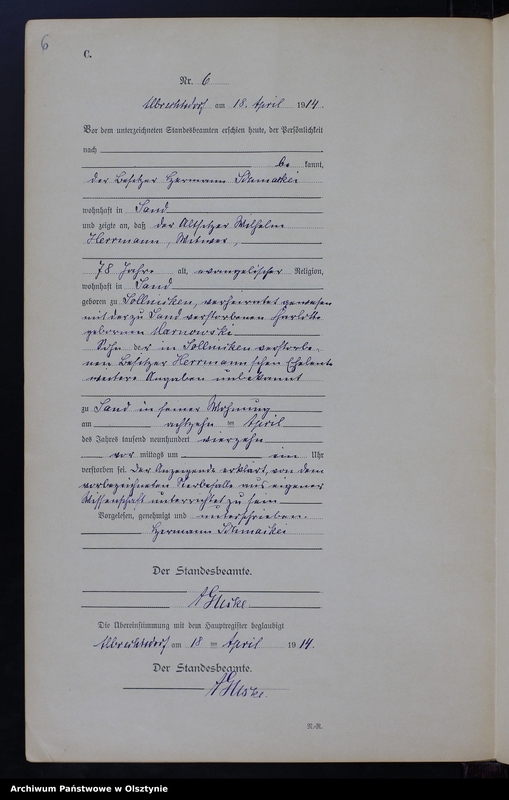 6
C.
Nr. 6
Albrechtsdorf am 18. April 1914.
Vor dem unterzeichneten Standesbeamten erschien heute, der Persönlichkeit
nach
be kannt,
der Besitzer Hermann
wohnhaft in Sand
und zeigte an, daß der Altsitzer Wilhelm
Herrmann, Witwer,
78 Jahre alt, evangelischer Religion,
wohnhaft in Sand
geboren zu Sollnicken, verheiratet gewesen
mit der zu Sand verstorbenen
geborenen Warnowski
Sohn der in Sollnicken verstorbe-
nen Besitzer Herrmann'schen Eheleute
weitere Angaben unbekannt
zu Sand in seiner Wohnung
am achtzehn ten April
des Jahres tausend neunhundert vierzehn
vor mittags um ein Uhr
verstorben sei. Der Anzeigende erklärt, von dem
vorbezeichneten Sterbefalle aus eigener
Wissenschaft unterrichtet zu sein
Vorgelesen, genehmigt und unterschrieben.
Hermann
Der Standesbeamte.
Die Übereinstimmung mit dem Hauptregister beglaubigt
Albrechtsdorf am 18 ten April 1914.
Der Standesbeamte.
N.-R.
Archiwum Państwowe w Olsztynie